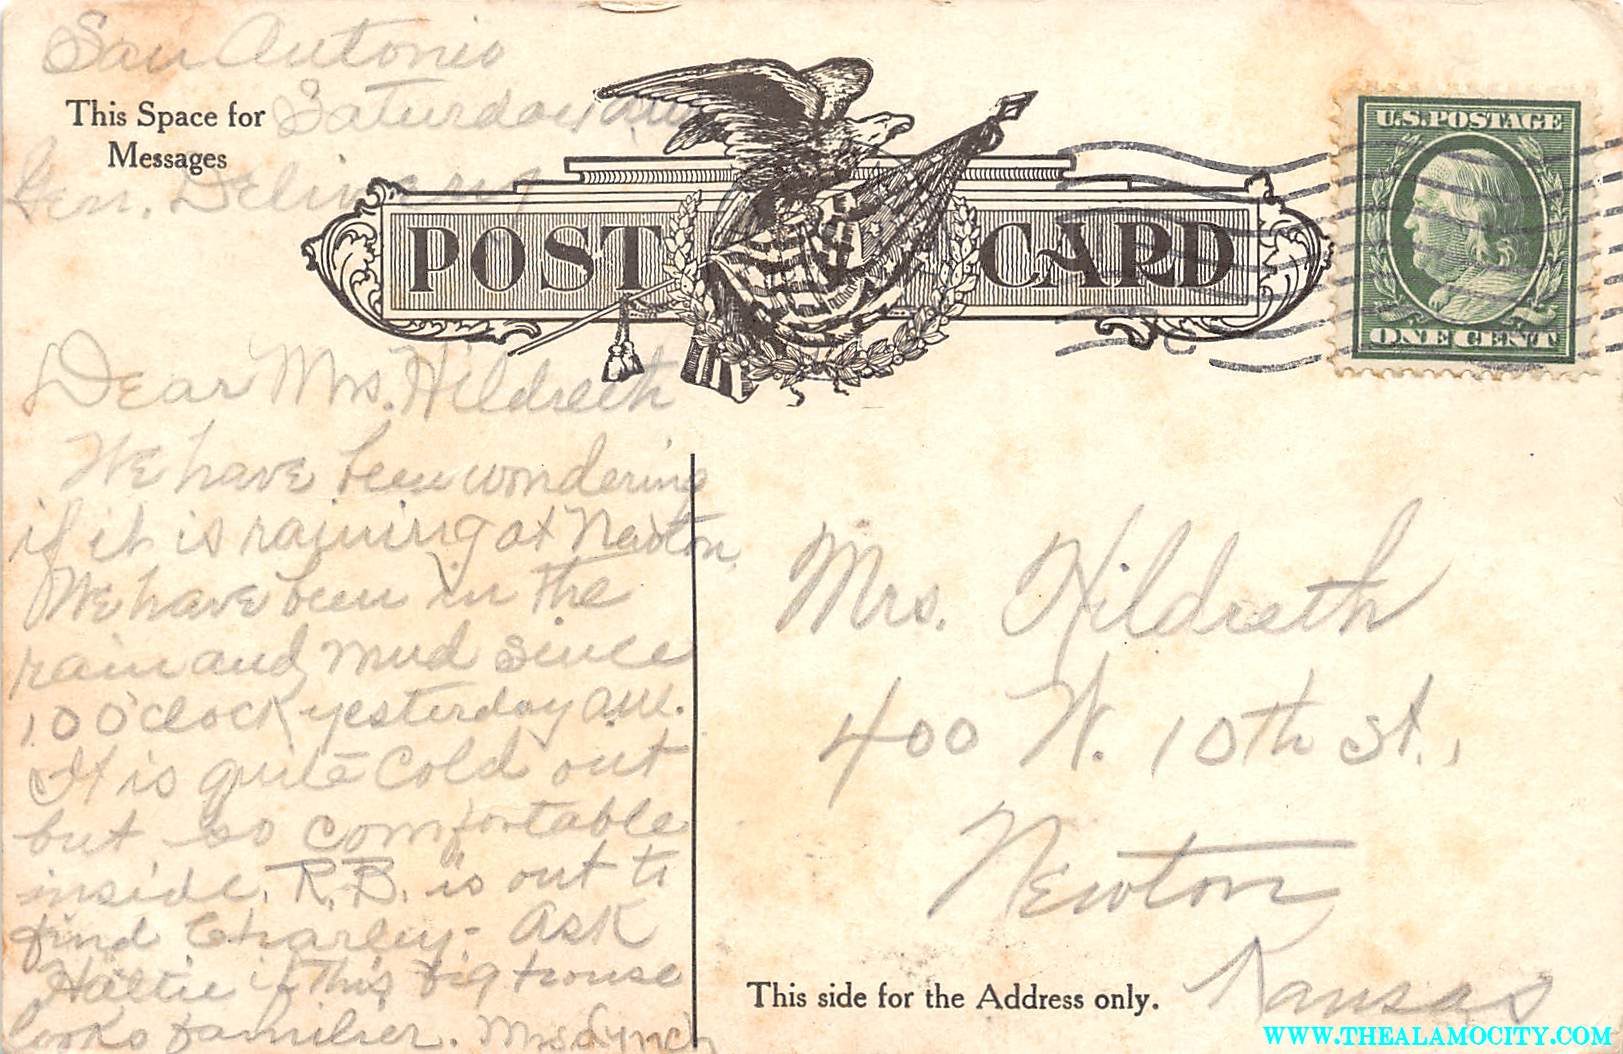 San Antonio
This Space for
Messages
Saturday a.m.
Gen. Delivery
U.S. POSTAGE
ONE CENT
POST CARD
Dear Mrs. Hildreth
We have been wondering
if it is raining at Newton.
We have been in the
rain and mud since
10 O'clock yesterday a.m.
It is quite cold out
but so comfortable
inside. R.B. is out to
find Charley - Ask
Hattie if this big house
looks familier. Mrs Lynch
Mrs. Hildreth
400 W. 10th St.,
Newton
Kansas
This side for the Address only.
WWW.THEALAMOCITY.COM